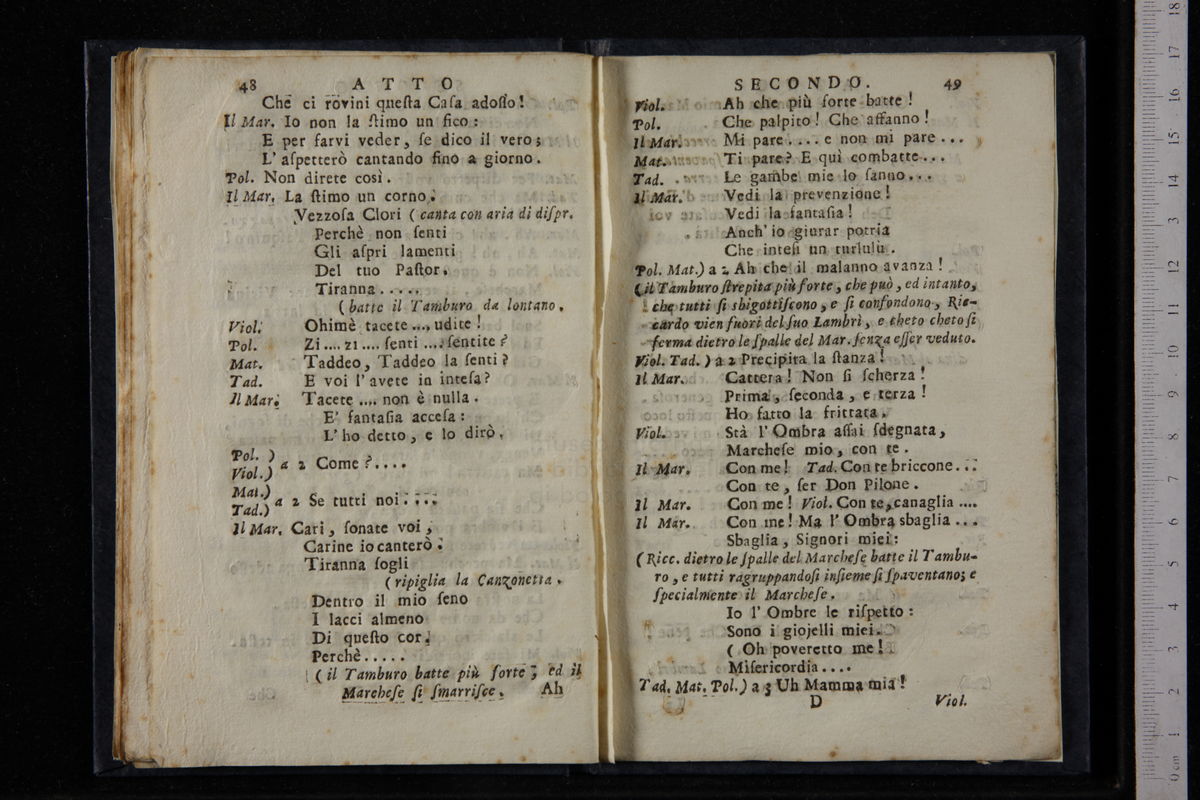 48 ATTO
Che ci rovini queſta Caſa adoſſo!
Il Mar. Io non la ſtimo un fico:
E per farvi veder, ſe dico il vero;
L' aſpetterò cantando fino a giorno.
Pol. Non direte così.
Il Mar. La ſtimo un corno.
Vezzoſa Clori (canta con aria di diſpr.
Perchè non ſenti
Gli aſpri lamenti
Del tuo Paſtor.
Tiranna.....
(batte il Tamburo da lontano.
Viol. Ohimè tacete .... udite!
Pol. Zi .... zi .... ſenti .... ſentite?
Mat. Taddeo, Taddeo la ſenti?
Tad. E voi l'avete in inteſa?
Il Mar. Tacete .... non è nulla.
E' fantaſia acceſa:
L' ho detto, e lo dirò.
Pol. )
Viol.) a 2 Come?....
Mat.)
Tad.) a 2 Se tutti noi....
Il Mar. Cari, ſonate voi,
Carine io canterò.
Tiranna ſogli
(ripiglia la Canzonetta.
Dentro il mio ſeno
I lacci almeno
Di queſto cor.
Perchè.....
(il Tamburo batte più forte, ed il
Marcheſe ſi ſmarriſce. Ah
SECONDO. 49
Viol. Ah che più forte batte!
Pol. Che palpito! Che affanno!
Il Mar. Mi pare .... e non mi pare ...
Mat. Ti pare? E quì combatte...
Tad. Le gambe mie lo ſanno...
Il Mar. Vedi la prevenzione!
Vedi la fantaſia!
Anch' io giurar potria
Che inteſi un turlulù.
Pol. Mat.) a 2 Ah che il malanno avanza!
(il Tamburo ſtrepita più forte, che può, ed intanto,
che tutti ſi sbigottiſcono, e ſi confondono, Ric-
cardo vien fuori del ſuo Lambrì, e cheto cheto ſi
ferma dietro le ſpalle del Mar. ſenza eſſer veduto.
Viol. Tad.) a 2 Precipita la ſtanza!
Il Mar. Cattera! Non ſi ſcherza!
Prima, ſeconda, e terza!
Ho fatto la frittata.
Viol. Stà l' Ombra aſſai ſdegnata,
Marcheſe mio, con te.
Il Mar. Con me! Tad. Con te briccone...
Con te, ſer Don Pilone.
Il Mar. Con me! Viol. Con te, canaglia ....
Il Mar. Con me! Ma l' Ombra sbaglia ...
Sbaglia, Signori miei:
(Ricc. dietro le ſpalle del Marcheſe batte il Tambu-
ro, e tutti ragruppandoſi inſieme ſi ſpaventano; e
ſpecialmente il Marcheſe.
Io l' Ombre le riſpetto:
Sono i giojelli miei.
( Oh poveretto me!
Miſericordia....
Tad. Mat. Pol.) a 3 Uh Mamma mia!
D Viol.